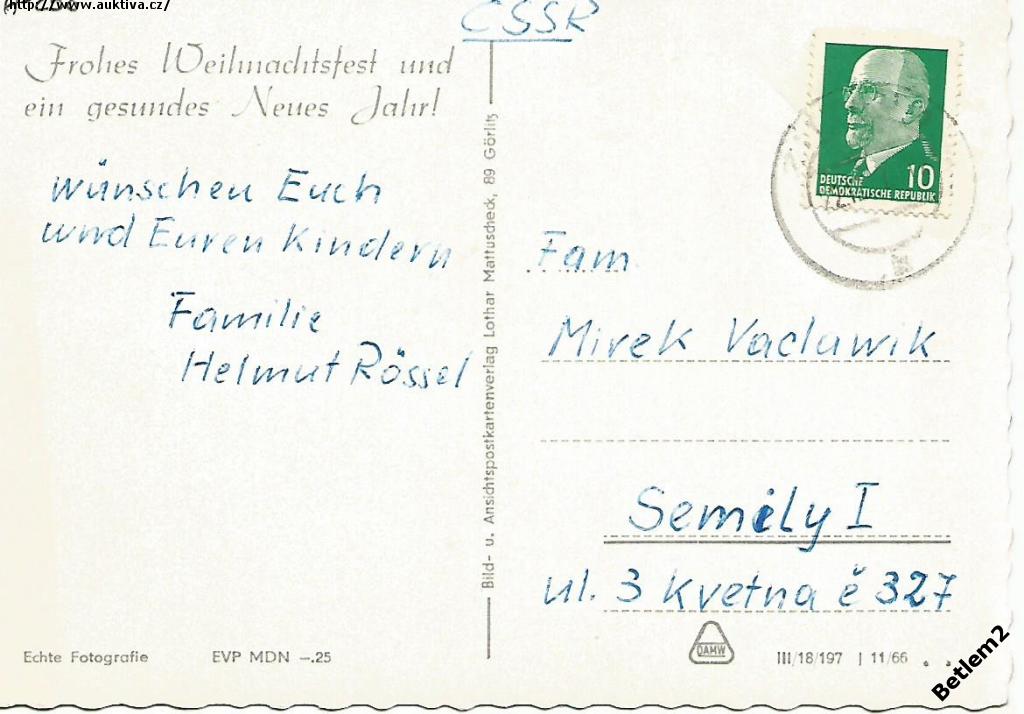 http://www.auktiva.cz/
ČSSR
Frohes Weihnachtsfest und
ein gesundes Neues Jahr!
wünschen Euch
und Euren Kindern
Familie
Helmut Rössel
Bild- u. Ansichtspostkartenverlag Lothar Mattuscheck, 89 Görlitz
10
DEUTSCHE
DEMOKRATISCHE REPUBLIK
Fam
Mirek Vaclawik
Semily I
ul. 3 Kvetna č 327
Echte Fotografie EVP MDN –.25
DAMW
III/18/197 J 11/66
Betlem2